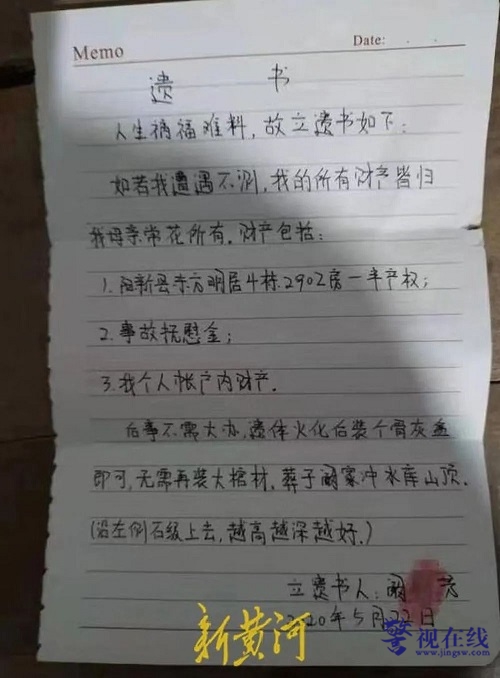 Memo
Date: . .
遗 书
人生祸福难料,故立遗书如下:
如若我遭遇不测,我的所有财产皆归
我母亲常花所有,财产包括:
1.阳新县东方明居4栋2902房一半产权;
2.事故抚慰金;
3.我个人帐户内财产.
后事不需大办,遗体火化后装个骨灰盒
即可,无需再装大棺材.葬于阚家冲水库山顶.
(沿左侧石级上去,越高越深越好.)
立遗书人:阚 芳
2020年5月22日
新黄河
警视在线
www.jingsw.com